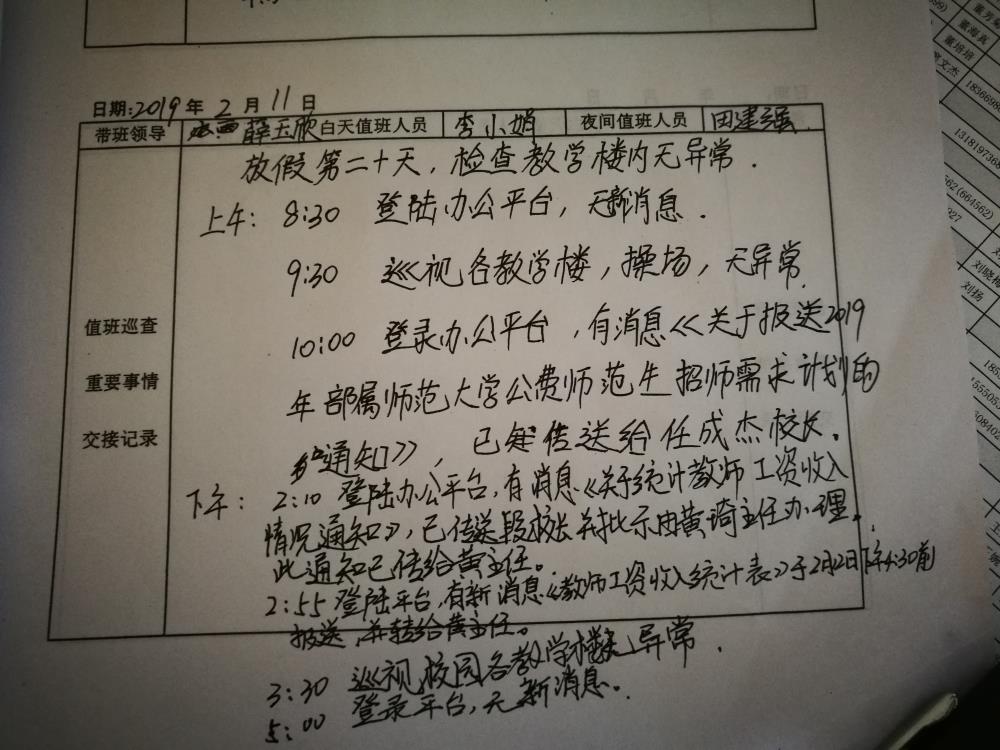 日期:2019年2月11日
带班领导 薛玉欣 白天值班人员 李小娟 夜间值班人员 田建强
放假第二十天，检查教学楼内无异常.
上午: 8:30 登陆办公平台，无新消息.
9:30 巡视各教学楼，操场，无异常.
值班巡查
10:00 登录办公平台，有消息《关于报送2019
重要事情
年部属师范大学公费师范生招师需求计划的
交接记录
通知》，已经传送给任成杰校长.
下午: 2:10 登陆办公平台,有消息《关于统计教师工资收入
情况通知》,已传送段校长并批示由黄琦主任办理。
此通知已传给黄主任.
2:55 登陆平台,有新消息《教师工资收入统计表》于2月12日下午4:30前
报送,并转给黄主任。
3:30 巡视校园各教学楼无异常.
5:00 登录平台,无新消息.
董海真
董培培
文杰
刘晓梅
刘扬